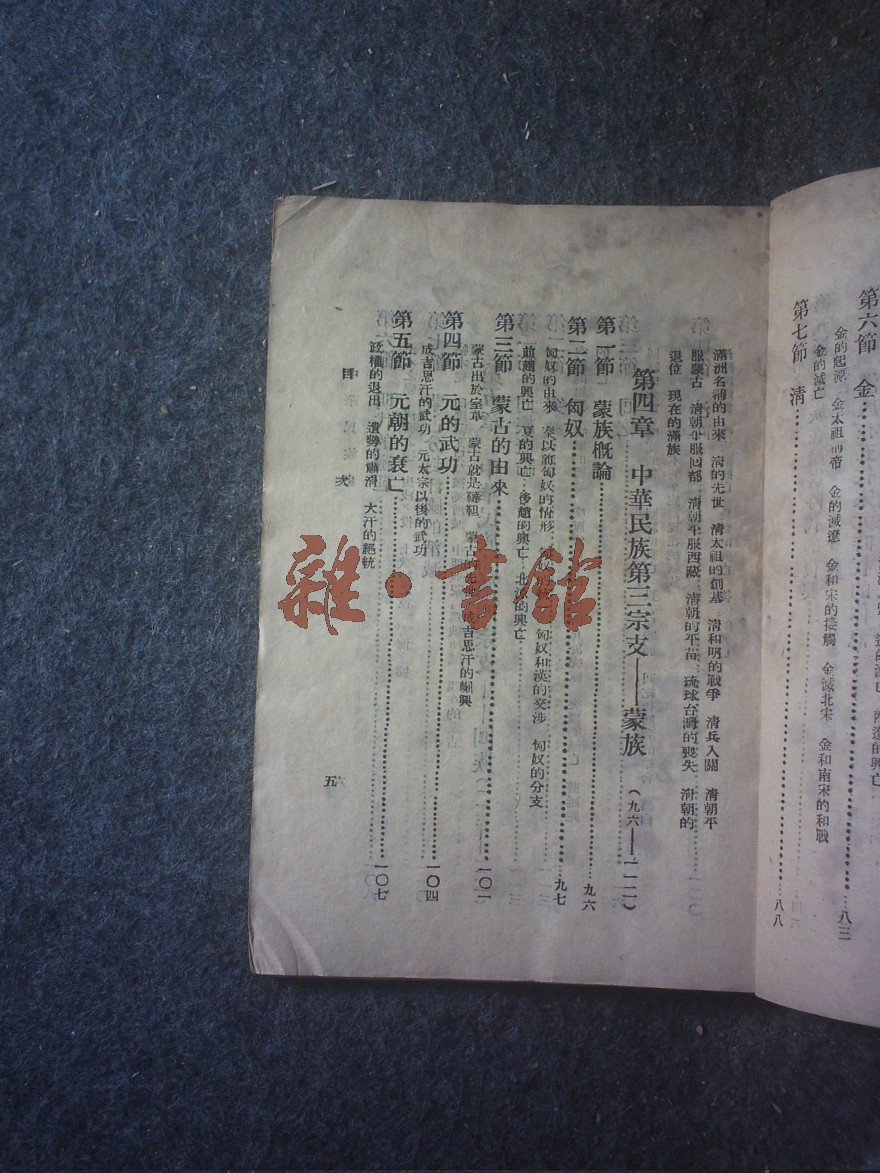 第六節 金……八三
金的起源 金太祖稱帝 金的滅遼 金和宋的接觸 金滅北宋 金和南宋的和戰
金的滅亡
第七節 清……八八
滿洲名稱的由來 清的先世 清太祖的創基 清和明的戰爭 清兵入關 清朝平
服蒙古 清朝平服回部 清朝平服西藏 清朝的平苗 琉球台灣的喪失 清朝的
退位 現在的滿族
第四章 中華民族第三宗支——蒙族 (九六——一一一)
第一節 蒙族概論……九六
第二節 匈奴……九七
匈奴的由來 秦以前匈奴的情形 匈奴和漢的交涉 匈奴的分支
前趙的興亡 夏的興亡 後趙的興亡 北涼的興亡
第三節 蒙古的由來……一〇一
蒙古出於室韋 蒙古就是韃靼 蒙古的 成吉思汗的崛興
第四節 元的武功……一〇四
成吉思汗的武功 元太宗以後的武功
第五節 元朝的衰亡……一〇七
政權的退出 遺勢的肅清 大汗的絕統
目 次
五
雜·書館